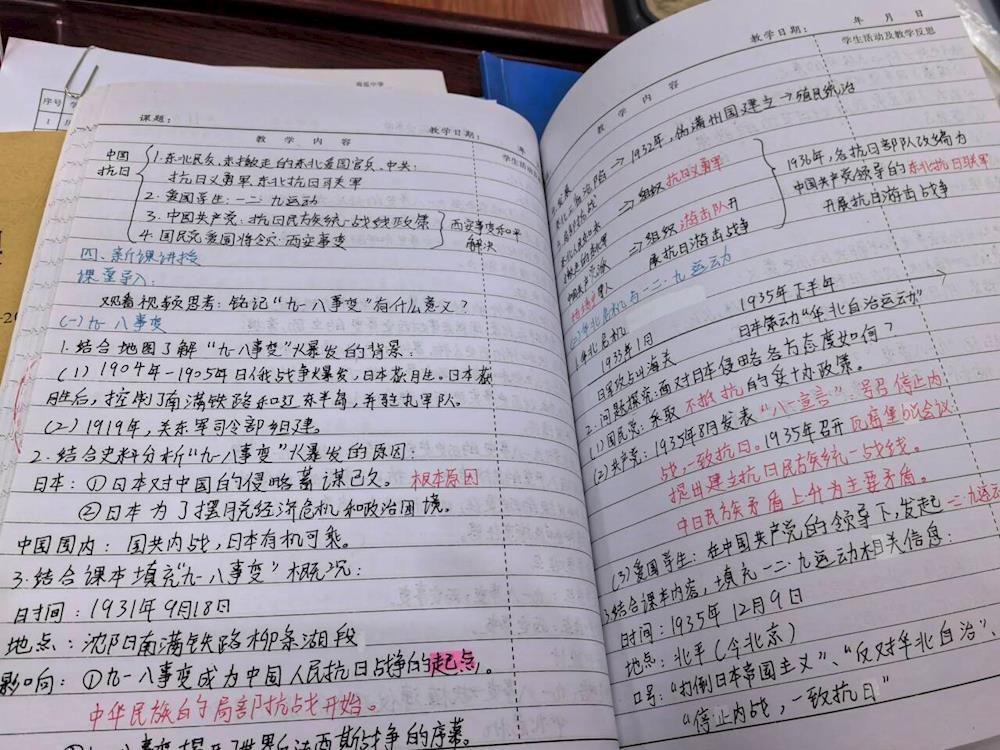 序号
1
课题：
教学日期：
教 学 内 容
学生活动
中国抗日
1. 东北民众、未撤走的东北爱国官兵、中共：
抗日义勇军、东北抗日联军
2. 爱国学生：一二·九运动
3. 中国共产党：抗日民族统一战线政策
4. 国民党爱国将领：西安事变
西安事变和平解决
四、新课讲授
课堂导入：
观看视频思考：铭记“九一八事变”有什么意义？
(一)九一八事变
1. 结合地图了解“九一八事变”爆发的背景：
(1) 1904年-1905年日俄战争爆发，日本获胜。日本获
胜后，控制了南满铁路和辽东半岛，并驻扎军队。
(2) 1919年，关东军司令部组建。
2. 结合史料分析“九一八事变”爆发的原因：
日本：①日本对中国的侵略蓄谋已久。 根本原因
②日本为了摆脱经济危机和政治困境。
中国国内：国共内战，日本有机可乘。
3. 结合课本填充“九一八事变”概况：
时间：1931年9月18日
地点：沈阳南满铁路柳条湖段
影响：①九一八事变成为中国人民抗日战争的起点。
中华民族的局部抗战开始。
教学日期： 年 月 日
教 学 内 容
学生活动及教学反思
→1932年，伪满州国建立→殖民统治
⇒组织抗日义勇军
⇒组织游击队开
展抗日游击战争
1936年，各抗日部队改编为
中国共产党领导的东北抗日联军
开展抗日游击战争
(二)华北危机与一二·九运动
1. 华北危机
1933年1月
日军攻占山海关
1935年下半年
日本策动“华北自治运动”
2. 问题探究：面对日本侵略各方态度如何？
(1) 国民党：采取不抵抗的妥协政策。
(2) 共产党：1935年8月发表“八一宣言”：号召停止内
战，一致抗日。1935年召开瓦窑堡会议
提出建立抗日民族统一战线。
中日民族矛盾上升为主要矛盾。
(3) 爱国学生：在中国共产党的领导下，发起一二·九运动
3. 结合课本内容，填充一二·九运动相关信息：
时间：1935年12月9日
地点：北平（今北京）
口号：“打倒日本帝国主义”、“反对华北自治”、
“停止内战，一致抗日”